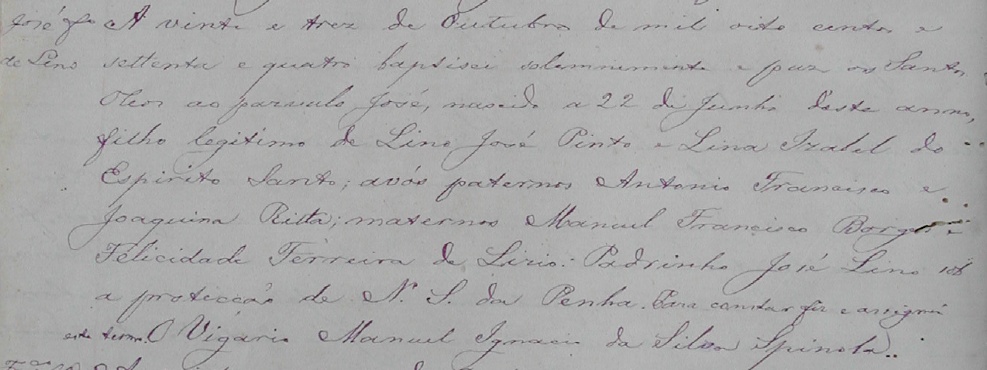 José fo A vinte e trez de Outubro de mil oito centos e
de Lino settenta e quatro baptisei solemnemente e puz os Santos
Oleos ao parvulo José, nascido a 22 de Junho deste anno,
filho legitimo de Lino José Pinto e Lina Izabel do
Espirito Santo; avós paternos Antonio Francisco e
Joaquina Ritta; maternos Manuel Francisco Borges e
Felicidade Ferreira de Lirio. Padrinho José Lino sob
a protecção de N. S. da Penha. Para constar fiz e assignei
este termo. O Vigario Manuel Ignacio da Silva Spinola..